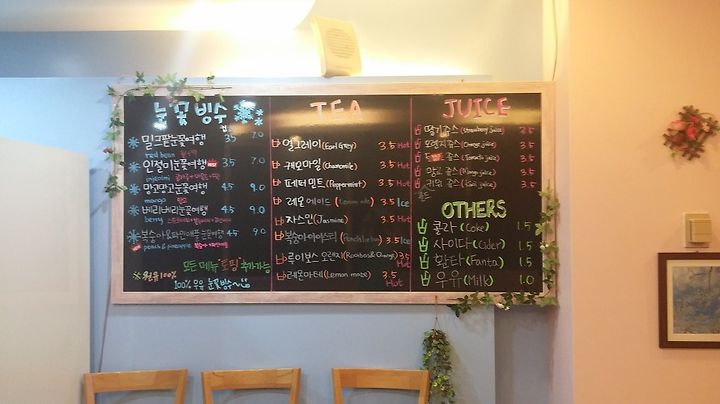 눈꽃빙수
컵
밀크팥눈꽃여행 3.5 7.0
red bean
인절미눈꽃여행 3.5 7.0
injeolmi
망고망고눈꽃여행 4.5 9.0
mango 망고
베리베리눈꽃여행 4.5 9.0
berry
복숭아&파인애플눈꽃여행 4.5 9.0
peach & pineapple
우유100% 모든메뉴 토핑 추가가능
100% 우유 눈꽃빙수~
TEA
얼그레이(Earl Grey) 3.5 Hot
캐모마일(Chamomile) 3.5 Hot
페퍼민트(Peppermint) 3.5 Hot
레몬에이드(Lemon ade) 3.5 Ice
자스민(Jasmine) 3.5 Hot
복숭아아이스티 3.5 Ice
루이보스 오렌지(Rooibos & Orange) 3.5 Hot
레몬마테(Lemon mate) 3.5 Hot
JUICE
딸기쥬스(Strawberry juice) 3.5
오렌지쥬스(Orange juice) 3.5
쥬스(Tomato juice) 3.5
망고쥬스(Mango juice) 3.5
키위쥬스(Kiwi juice) 3.5
OTHERS
콜라(Coke) 1.5
사이다(Cider) 1.5
환타(Fanta) 1.5
우유(Milk) 1.0